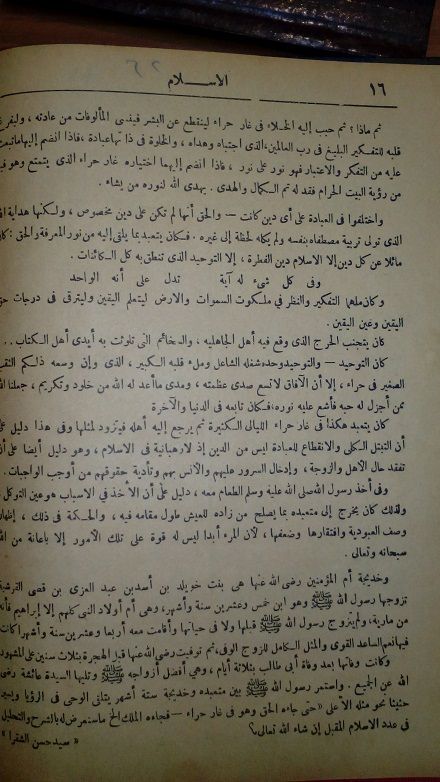 ١٦
الاسلام
ثم ماذا؟ ثم حبب إليه الخلاء فى غار حراء لينقطع عن البشر فينسى المألوفات من عادته، وليفرغ
قلبه للتفكير البليغ فى رب العالمين، الذى اجتباه وهداه، والخلوة فى ذاتها عبادة، فاذا انضم إليها ما يبعث
عليه من التفكر والاعتبار فهو نور على نور، فاذا انضم إليهما اختياره غار حراء الذى يتمتع وهو فيه
من رؤية البيت الحرام فقد تم له الكمال والهدى. يهدى الله لنوره من يشاء.
واختلفوا فى العبادة على أى دين كانت — والحق أنها لم تكن على دين مخصوص، ولكنها هداية الله
الذى تولى تربية مصطفاه بنفسه ولم يكله لحظة إلى غيره. فكان يتعبد بما يلقى إليه من نور المعرفة والحق: كان
مائلا عن كل دين إلا الاسلام دين الفطرة، إلا التوحيد الذى تنطق به كل الكائنات.
وفى كل شىء له آية تدل على أنه الواحد
وكان ملهما التفكير والنظر فى ملكوت السموات والارض ليتعلم اليقين وليترقى فى درجات حق
اليقين وعين اليقين.
كان يتجنب الحرج الذى وقع فيه أهل الجاهلية، والدخائم التى تلوثت به أيدى أهل الكتاب..
كان التوحيد — والتوحيد وحده شغله الشاغل وملء قلبه الكبير، الذى وإن وسعه ذلكم النقب
الصغير فى حراء، إلا أن الآفاق لا تسع صدى عظمته، ومدى ما أعد له الله من خلود وتكريم، جعلنا الله
ممن أجزل له حبه فأشع عليه نوره، فكان تابعه فى الدنيا والآخرة
كان يتعبد هكذا فى غار حراء الليالى الكثيرة ثم يرجع إلى أهله فيتزود لمثلها وفى هذا دليل على
أن التبتل الكلى والانقطاع للعبادة ليس من الدين إذ لا رهبانية فى الاسلام، وهو دليل أيضا على أن
تفقد حال الأهل والزوجة، وإدخال السرور عليهم والأنس بهم وتأدية حقوقهم من أوجب الواجبات.
وفى أخذ رسول الله صلى الله عليه وسلم الطعام معه، دليل على أن الأخذ فى الاسباب هو عين التوكل
ولذلك كان يخرج إلى متعبده بما يصلح من زاده للعيش طول مقامه فيه، والحكمة فى ذلك، إظهار
وصف العبودية وافتقارها وضعفها، لأن المرء أبدا ليس له قوة على تلك الأمور إلا باعانة من الله
سبحانه وتعالى.
وخديجة أم المؤمنين رضى الله عنها هى بنت خويلد بن أسد بن عبد العزى بن قصى القرشية
تزوجها رسول الله ﷺ وهو ابن خمس وعشرين سنة وأشهر، وهى أم أولاد النبى كلهم إلا إبراهيم فأنه
من مارية، ولم يتزوج رسول الله ﷺ قبلها ولا فى حياتها وأقامت معه أربعا وعشرين سنة وأشهرا كانت
فيها نعم الساعد القوى والمثل الكامل للزوج الوفى، ثم توفيت رضى الله عنها قبل الهجرة بثلاث سنين على المشهور
وكانت وفاتها بعد وفاة أبى طالب بثلاثة أيام، وهى أفضل أزواجه ﷺ وتليها السيدة عائشة رضى
الله عن الجميع. واستمر رسول الله ﷺ بين متعبده وخديجة ستة أشهر يتلقى الوحى فى الرؤيا ويسير
حثيثا نحو مثله الأعلى «حتى جاءه الحق وهو فى غار حراء — فجاءه الملك الخ» ما سنعرض له بالشرح والتحليل
فى عدد الاسلام المقبل إن شاء الله تعالى؟
«سيد حسن الشقرا»